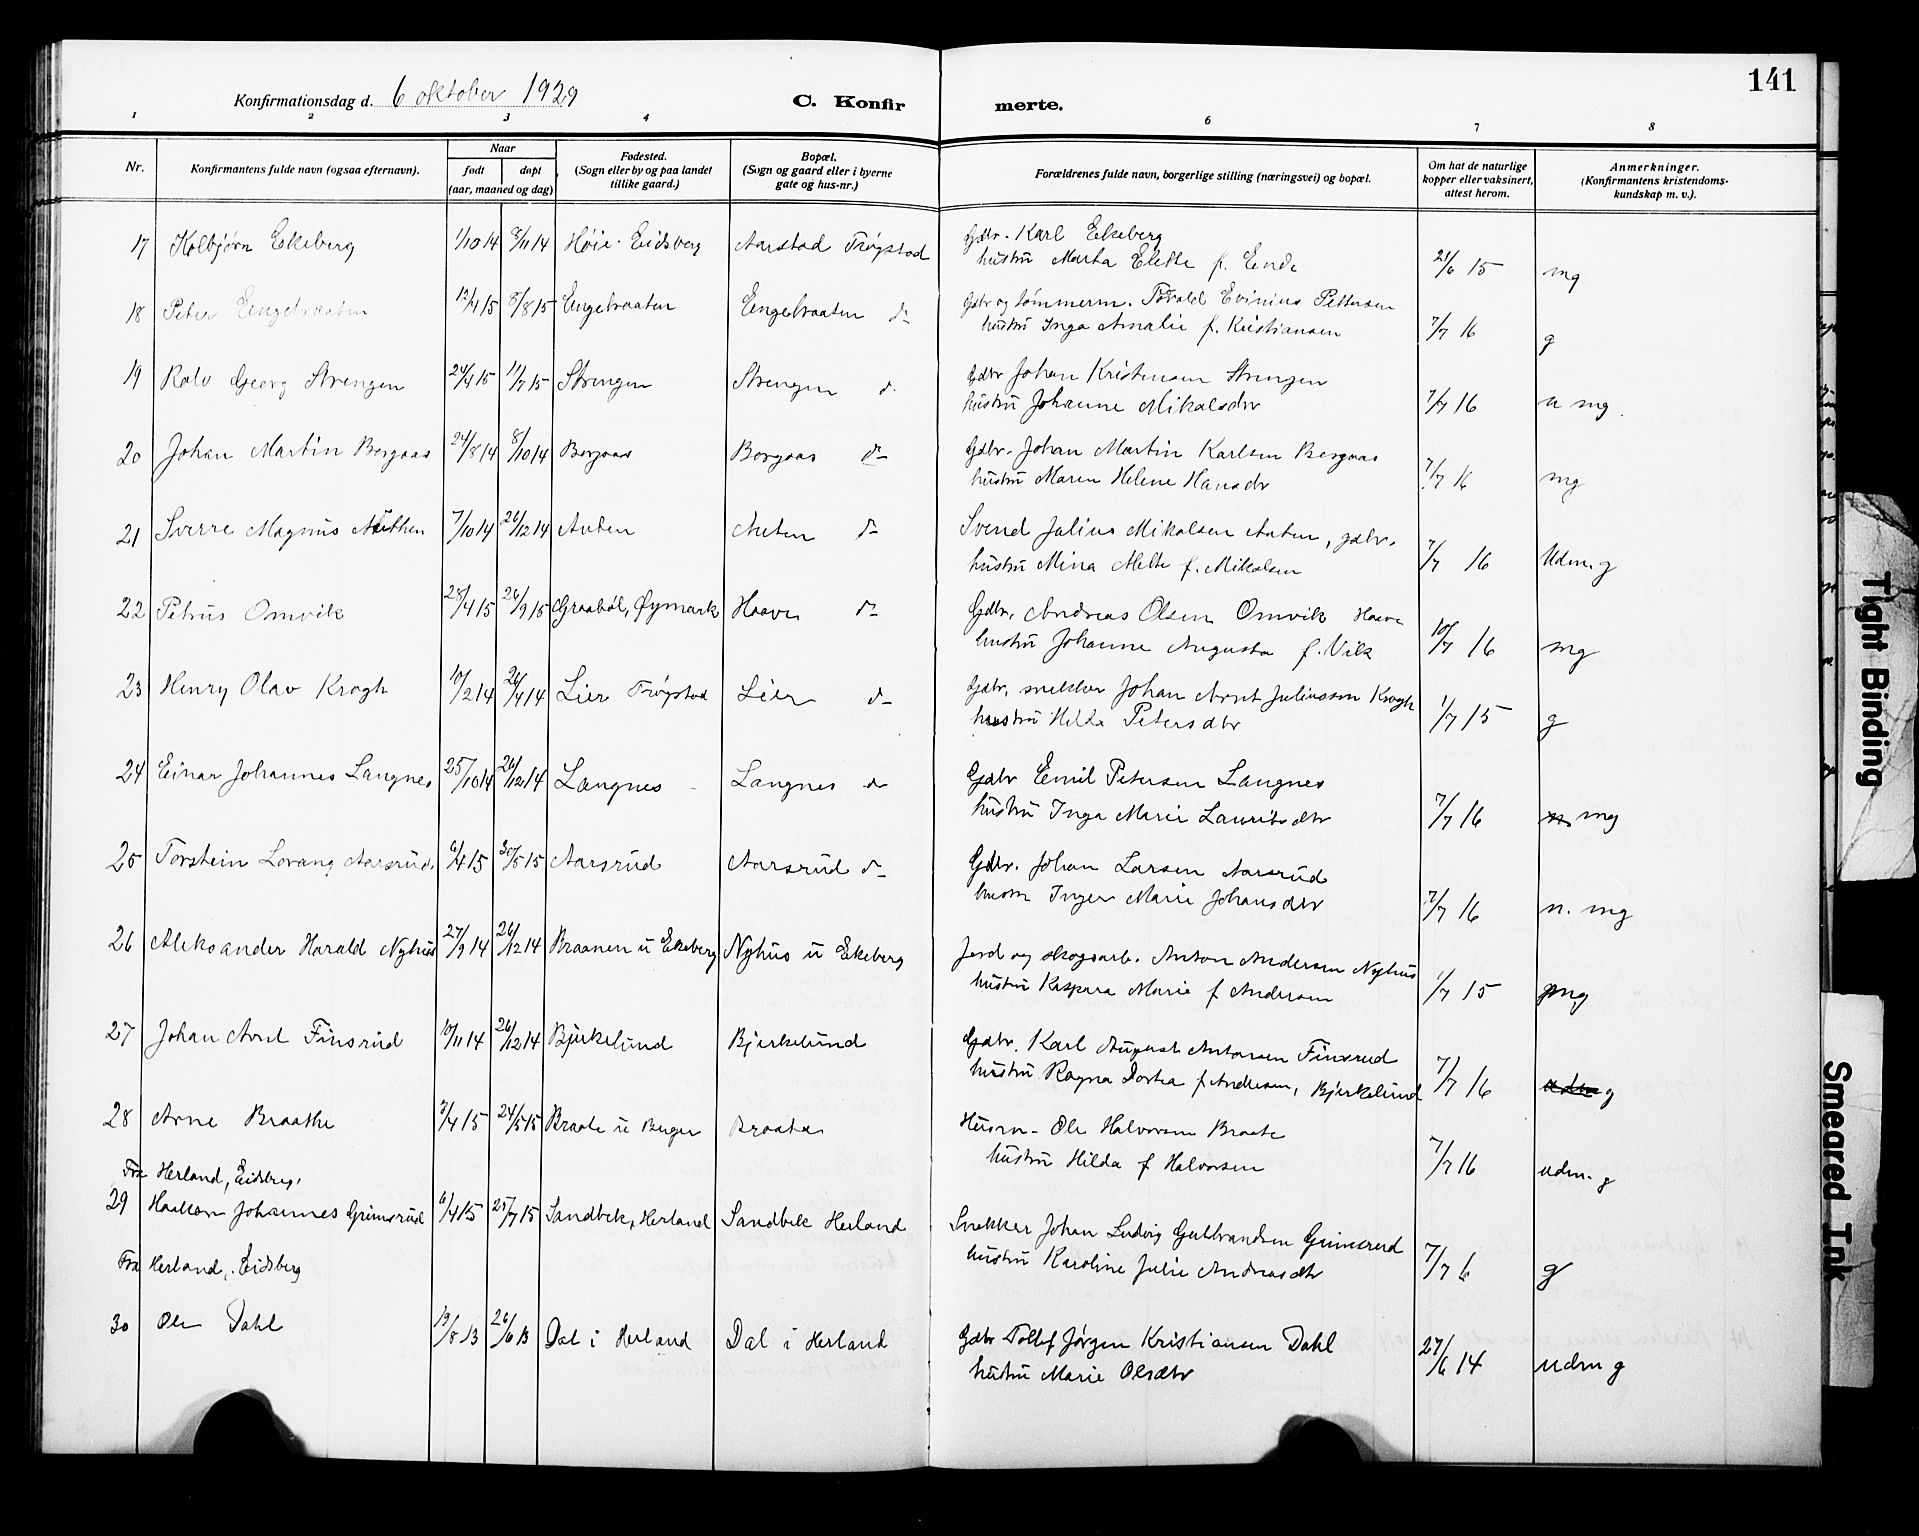 141
Konfirmationsdag d. 6 oktober 1929 C. Konfir merte.
1 2 3 4 6 7 8
Nr. Konfirmantens fulde navn (ogsaa efternavn). Naar født døpt (aar, maaned og dag) Fødested. (Sogn eller by og paa landet tillike gaard.) Bopæl. (Sogn og gaard eller i byerne gate og hus-nr.) Forældrenes fulde navn, borgerlige stilling (næringsvei) og bopæl. Om hat de naturlige kopper eller vaksinert, attest herom. Anmerkninger. (Konfirmantens kristendoms-kundskap m. v.).
17 Kolbjørn Ekeberg 1/10 14 8/11 14 Høie. Eidsberg Aarstad Trøgstad Gdbr. Karl Ekeberg
hustru Marta Elette f. Ende 21/6 15 mg
18 Peter Engebraaten 12/4 15 8/8 15 Engebraaten Engebraaten do Gdbr og tømmerm. Torvald Evinius Pettersen
hustru Inga Amalie f. Kristiansen 7/7 16 g
19 Rolv Georg Strengen 24/4 15 11/7 15 Strengen Strengen d. Gdbr Johan Kristensen Strengen
hustru Johanne Mikalsdtr 7/7 16 n mg.
20 Johan Martin Bergaas 24/8 14 8/10 14 Bergaas Bergaas do Gdbr. Johan Martin Karlsen Bergaas
hustru Maren Helene Hansdtr 7/7 16 mg
21 Sverre Magnus Authen 7/10 14 26/12 14 Auten Auten do Svend Julius Mikalsen Auten, gdbr.
hustru Mina Mette f. Mikalsen 7/7 16 Udm. g
22 Petrus Omvik 28/4 15 26/9 15 Graabøl, Øymark Haave do Gdbr. Andreas Olsen Omvik Haave
hustru Johanne Augusta f. Vik 10/7 16 mg
23 Henry Olav Krogh 10/2 14 26/4 14 Lier Trøgstad Lier do Gdbr, snekker Johan Arnt Juliussen Krogh
hustru Hilda Petersdtr 1/7 15 g
24 Einar Johannes Langnes 25/10 14 26/12 14 Langnes Langnes do Gdbr Emil Petersen Langnes
hustru Inga Marie Lauritsdtr 7/7 16 mg
25 Torstein Lorang Aarsrud. 6/4 15 30/5 15 Aarsrud Aarsrud do Gdbr. Johan Larsen Aarsrud
hustru Inger Marie Johansdtr 7/7 16 n. mg
26 Aleksander Harald Nyhus 27/9 14 26/12 14 Braanen u Ekeberg Nyhus u Ekeberg Jord og skogsarb. Anton Andersen Nyhus
hustru Kaspara Marie f Andersen 1/7 15 mg
27 Johan Arnt Finsrud 10/11 14 26/12 14 Bjerkelund Bjerkelund Gdbr. Karl August Antonsen Finsrud
hustru Ragna Dortea f Andersen, Bjerkelund 7/7 16 g
28 Arne Braathe 3/4 15 24/5 15 Braate u Berger Braate Husm. Ole Halvorsen Braate
hustru Hilda f Halvorsen 7/7 16 udm. g
Fra Herland, Eidsberg.
29 Haakon Johannes Grimsrud 6/4 15 25/7 15 Sandbek, Herland Sandbek Herland Snekker Johan Ludvig Gulbrandsen Grimsrud
hustru Karoline Julie Andreasdtr 7/7 6 g
Fra Herland, Eidsberg
30 Ole Dahl 19/8 13 26/6 13 Dal i Herland Dal i Herland Gdbr Tollef Jørgen Kristiansen Dahl
hustru Marie Olsdtr 27/6 14 udm g
Tight Binding
Smeared Ink